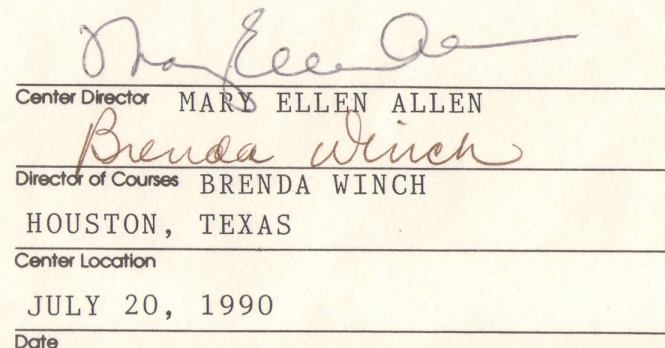 Mary Ellen Allen
Center Director MARY ELLEN ALLEN
Brenda Winch
Director of Courses BRENDA WINCH
HOUSTON, TEXAS
Center Location
JULY 20, 1990
Date